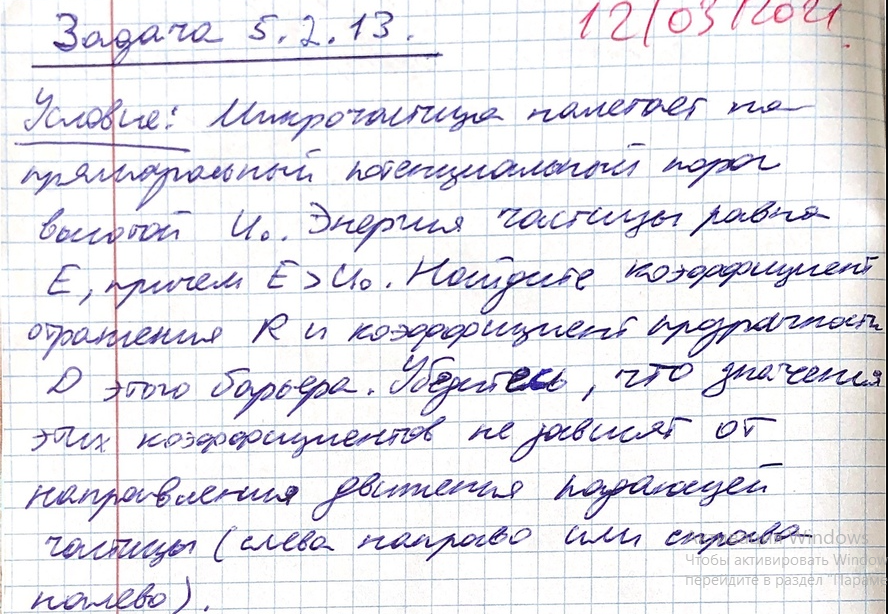 Задача 5.2.13.
12/03/2021
Условие: Микрочастица налетает на
прямоугольный потенциальный порог
высотой U₀. Энергия частицы равна
E, причем E > U₀. Найдите коэффициент
отражения R и коэффициент прозрачности
D этого барьера. Убедитесь, что значения
этих коэффициентов не зависят от
направления движения падающей
частицы (слева направо или справа
налево).
Активация Windows
Чтобы активировать Windows
перейдите в раздел "Параме